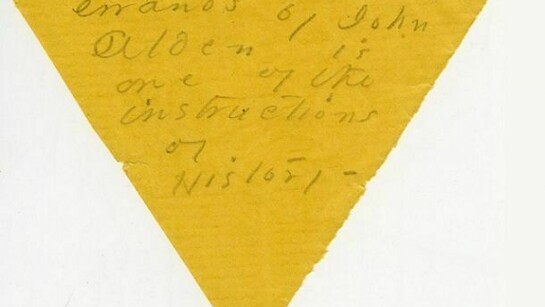 errands of John
Alden is
one of the
instructions
of
History –